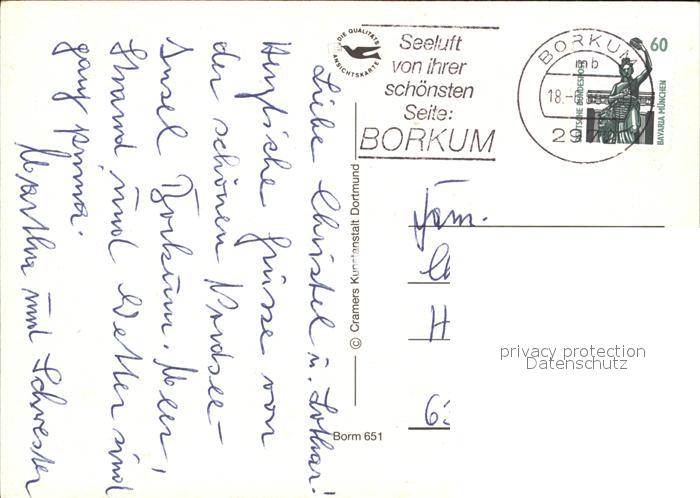 Liebe Christel u. Lothar!
Herzliche Grüsse von
der schönen Nordsee-
Insel Borkum. Meer,
Strand und Wetter sind
ganz prima.
Martha und Schwester
DIE QUALITÄTS
ANSICHTSKARTE
Seeluft
von ihrer
schönsten
Seite:
BORKUM
BORKUM
mb
18.
2972
60
DEUTSCHE BUNDESPOST
BAVARIA MÜNCHEN
© Cramers Kunstanstalt Dortmund
Borm 651
Fam.
H
63
privacy protection
Datenschutz